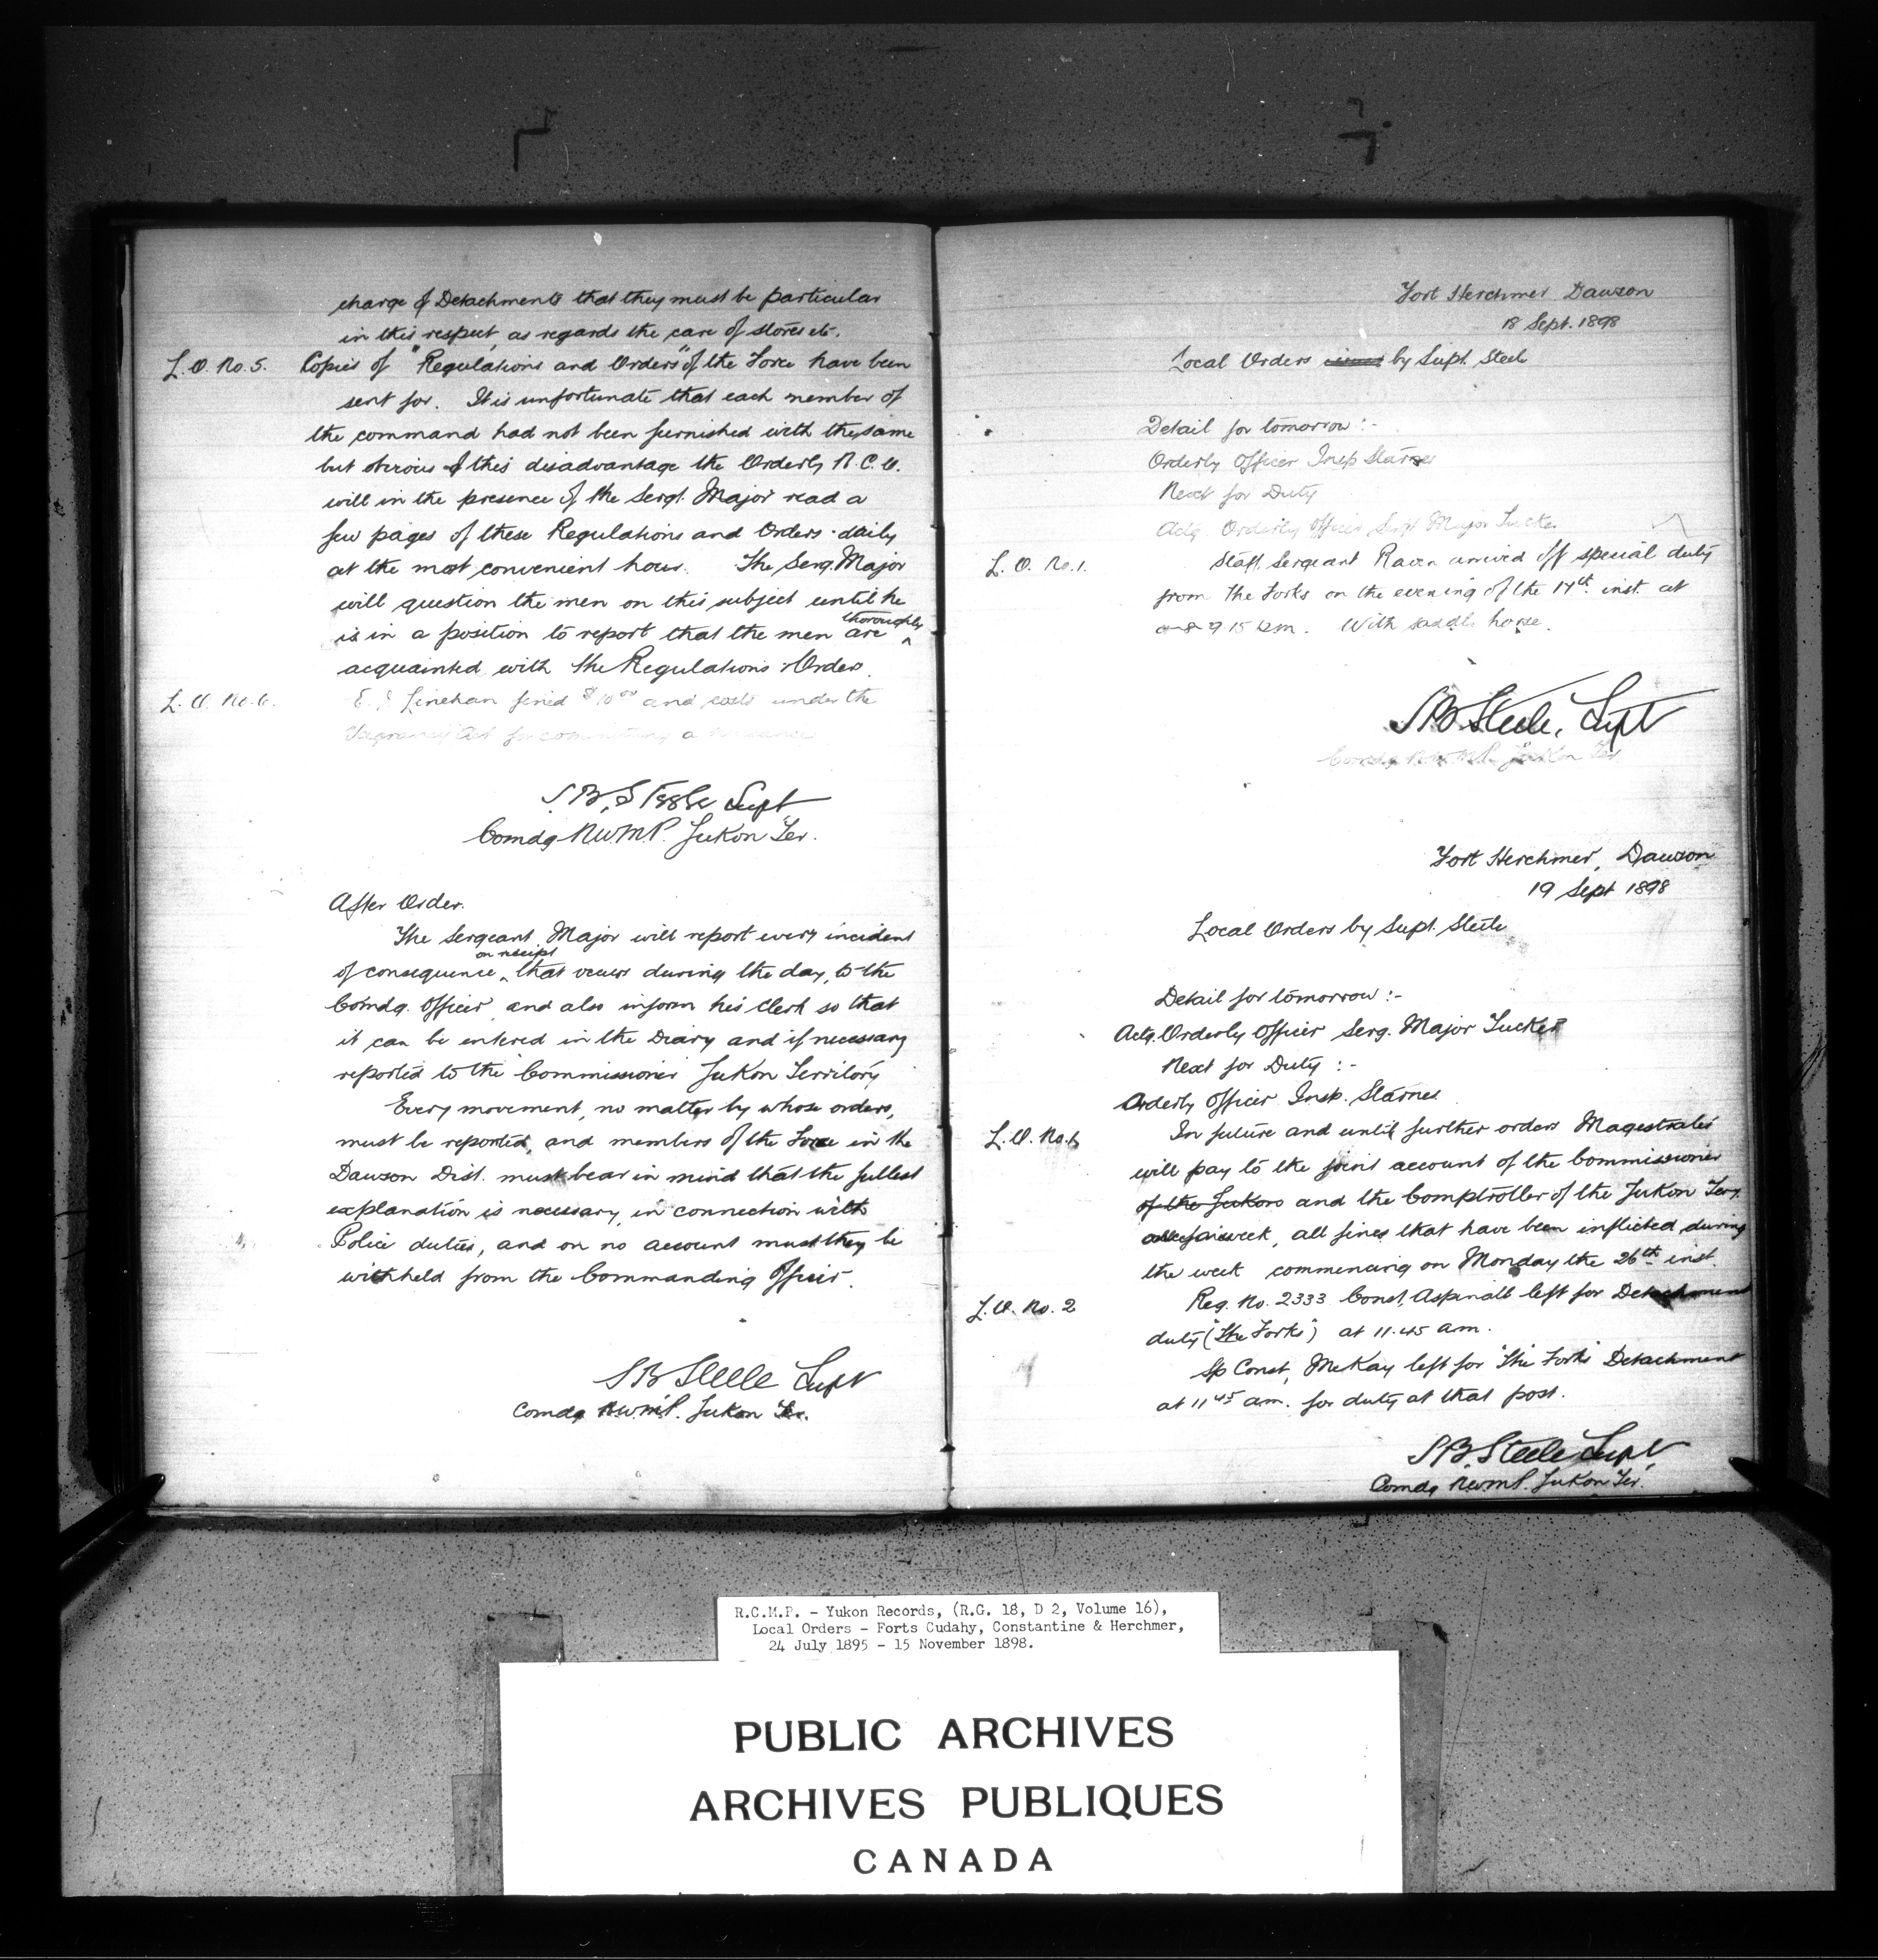 charge of Detachments that they must be particular
in this respect, as regards the care of stores etc.
L.O. No. 5. Copies of "Regulations and Orders" of the Force have been
sent for. It is unfortunate that each member of
the command had not been furnished with the same
but obvious of this disadvantage the Orderly N.C.O.
will in the presence of the Sergt. Major read a
few pages of these Regulations and Orders daily
at the most convenient hour. The Serg. Major
will question the men on this subject until he
is in a position to report that the men are thoroughly
acquainted with the Regulations & Orders.
L.O. No. 6. E. Linehan fined $10.00 and costs under the
Vagrancy Act for committing a nuisance
S.B. Steele Supt
Comdg N.W.M.P. Yukon Ter.
After Order.
The Sergeant Major will report every incident
of consequence on receipt that occurs during the day, to the
Comdg. Officer, and also inform his clerk so that
it can be entered in the Diary and if necessary
reported to the Commissioner Yukon Territory
Every movement, no matter by whose orders,
must be reported, and members of the Force in the
Dawson Dist. must bear in mind that the fullest
explanation is necessary, in connection with
Police duties, and on no account must they be
withheld from the Commanding Officer.
S B Steele Supt
Comdg N.W.M.P. Yukon Ter.
Fort Herchmer Dawson
18 Sept. 1898
Local Orders by Supt. Steele
Detail for tomorrow :-
Orderly Officer Insp Starnes
Next for Duty
Actg. Orderly Officer Sergt Major Tucker
L.O. No. 1. Staff Sergeant Raven arrived off special duty
from The Forks on the evening of the 17th inst. at
9 15 p.m. With saddle horse.
S.B. Steele, Supt
Comdg N.W.M.P. Yukon Ter
Fort Herchmer, Dawson
19 Sept 1898
Local Orders by Supt. Steele
Detail for tomorrow :-
Actg. Orderly Officer Serg. Major Tucker
Next for Duty :-
Orderly Officer Insp. Starnes
L.O. No. 1 In future and until further orders Magestrates
will pay to the joint account of the Commissioner
of the Yukon and the Comptroller of the Yukon Tery.
week, all fines that have been inflicted during
the week commencing on Monday the 26th inst.
L.O. No. 2 Reg. No. 2333 Const. Aspinall left for Detachment
duty ("The Forks") at 11.45 am.
Sp Const, McKay left for "The Forks" Detachment
at 11 45 am. for duty at that post.
S.B. Steele Supt.
Comdg N.W.M.P. Yukon Ter.
R.C.M.P. - Yukon Records, (R.G. 18, D 2, Volume 16),
Local Orders - Forts Cudahy, Constantine & Herchmer,
24 July 1895 - 15 November 1898.
PUBLIC ARCHIVES
ARCHIVES PUBLIQUES
CANADA